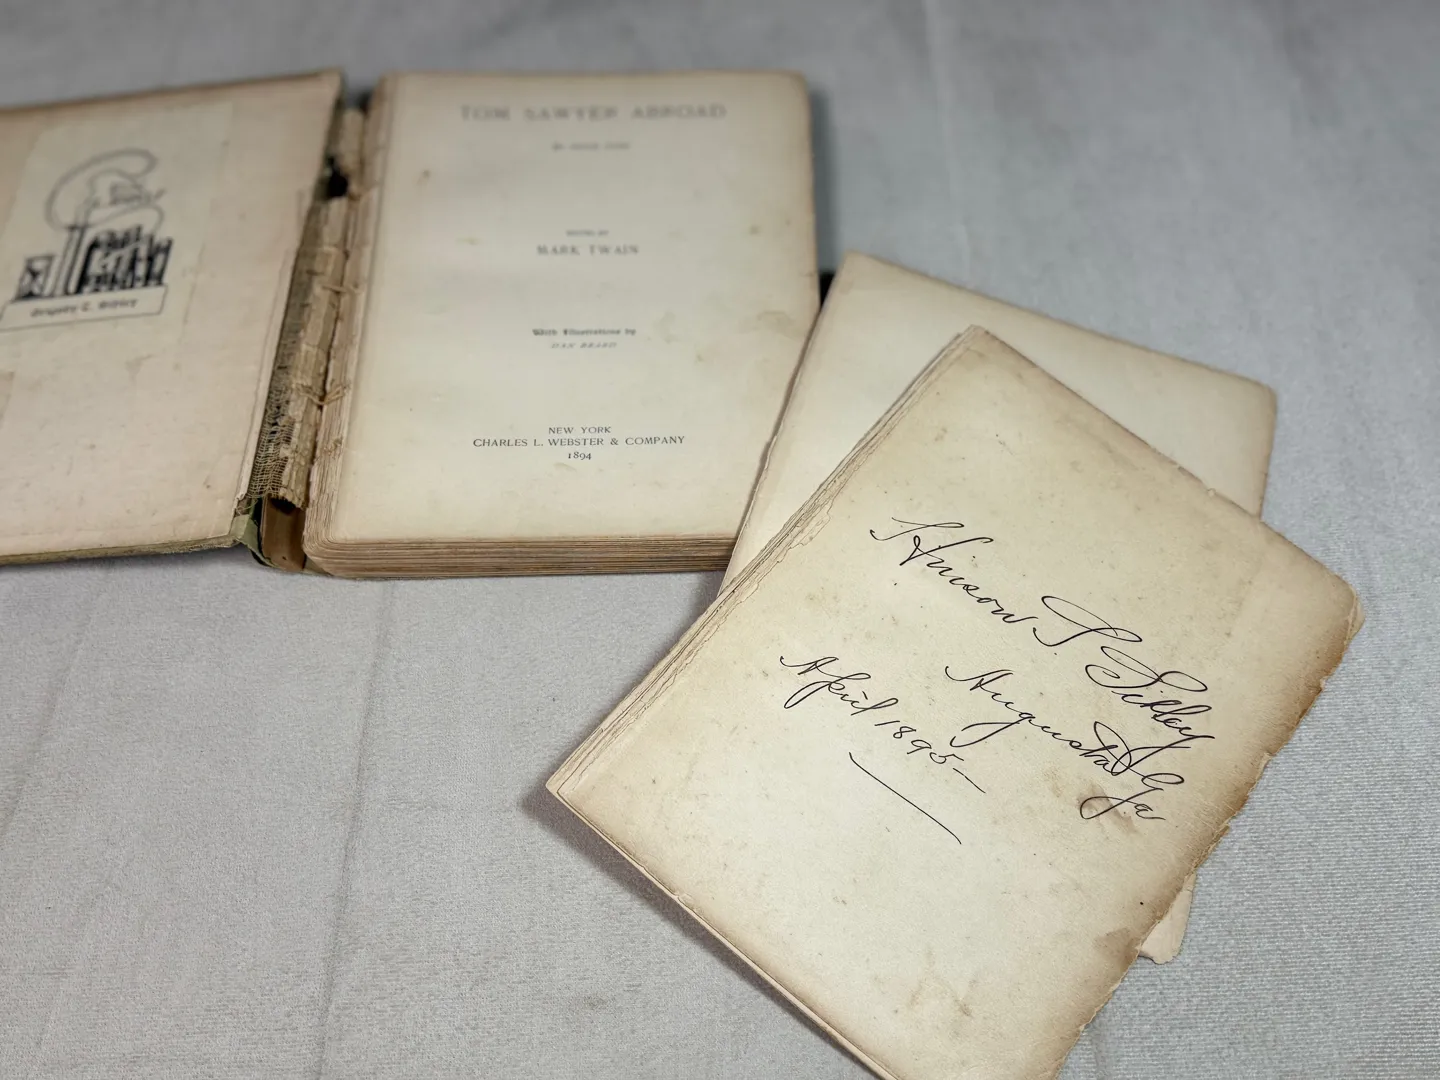 TOM SAWYER ABROAD
MARK TWAIN
With Illustrations by
DAN BEARD
NEW YORK
CHARLES L. WEBSTER & COMPANY
1894
S.
Augusta Ga
April 1895—